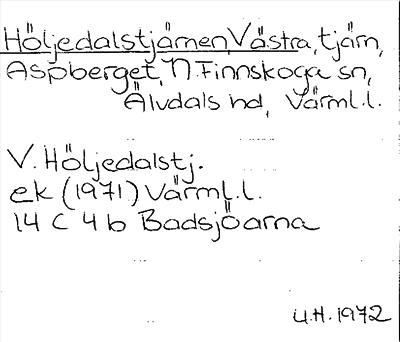 Höljedalstjärnen, Västra, tjärn,
Aspberget, N. Finnskoga sn,
Älvdals hd, Värml.l.
V. Höljedalstj.
ek (1971) Värml.l.
14 C 4 b Badsjöarna
U.H. 1972